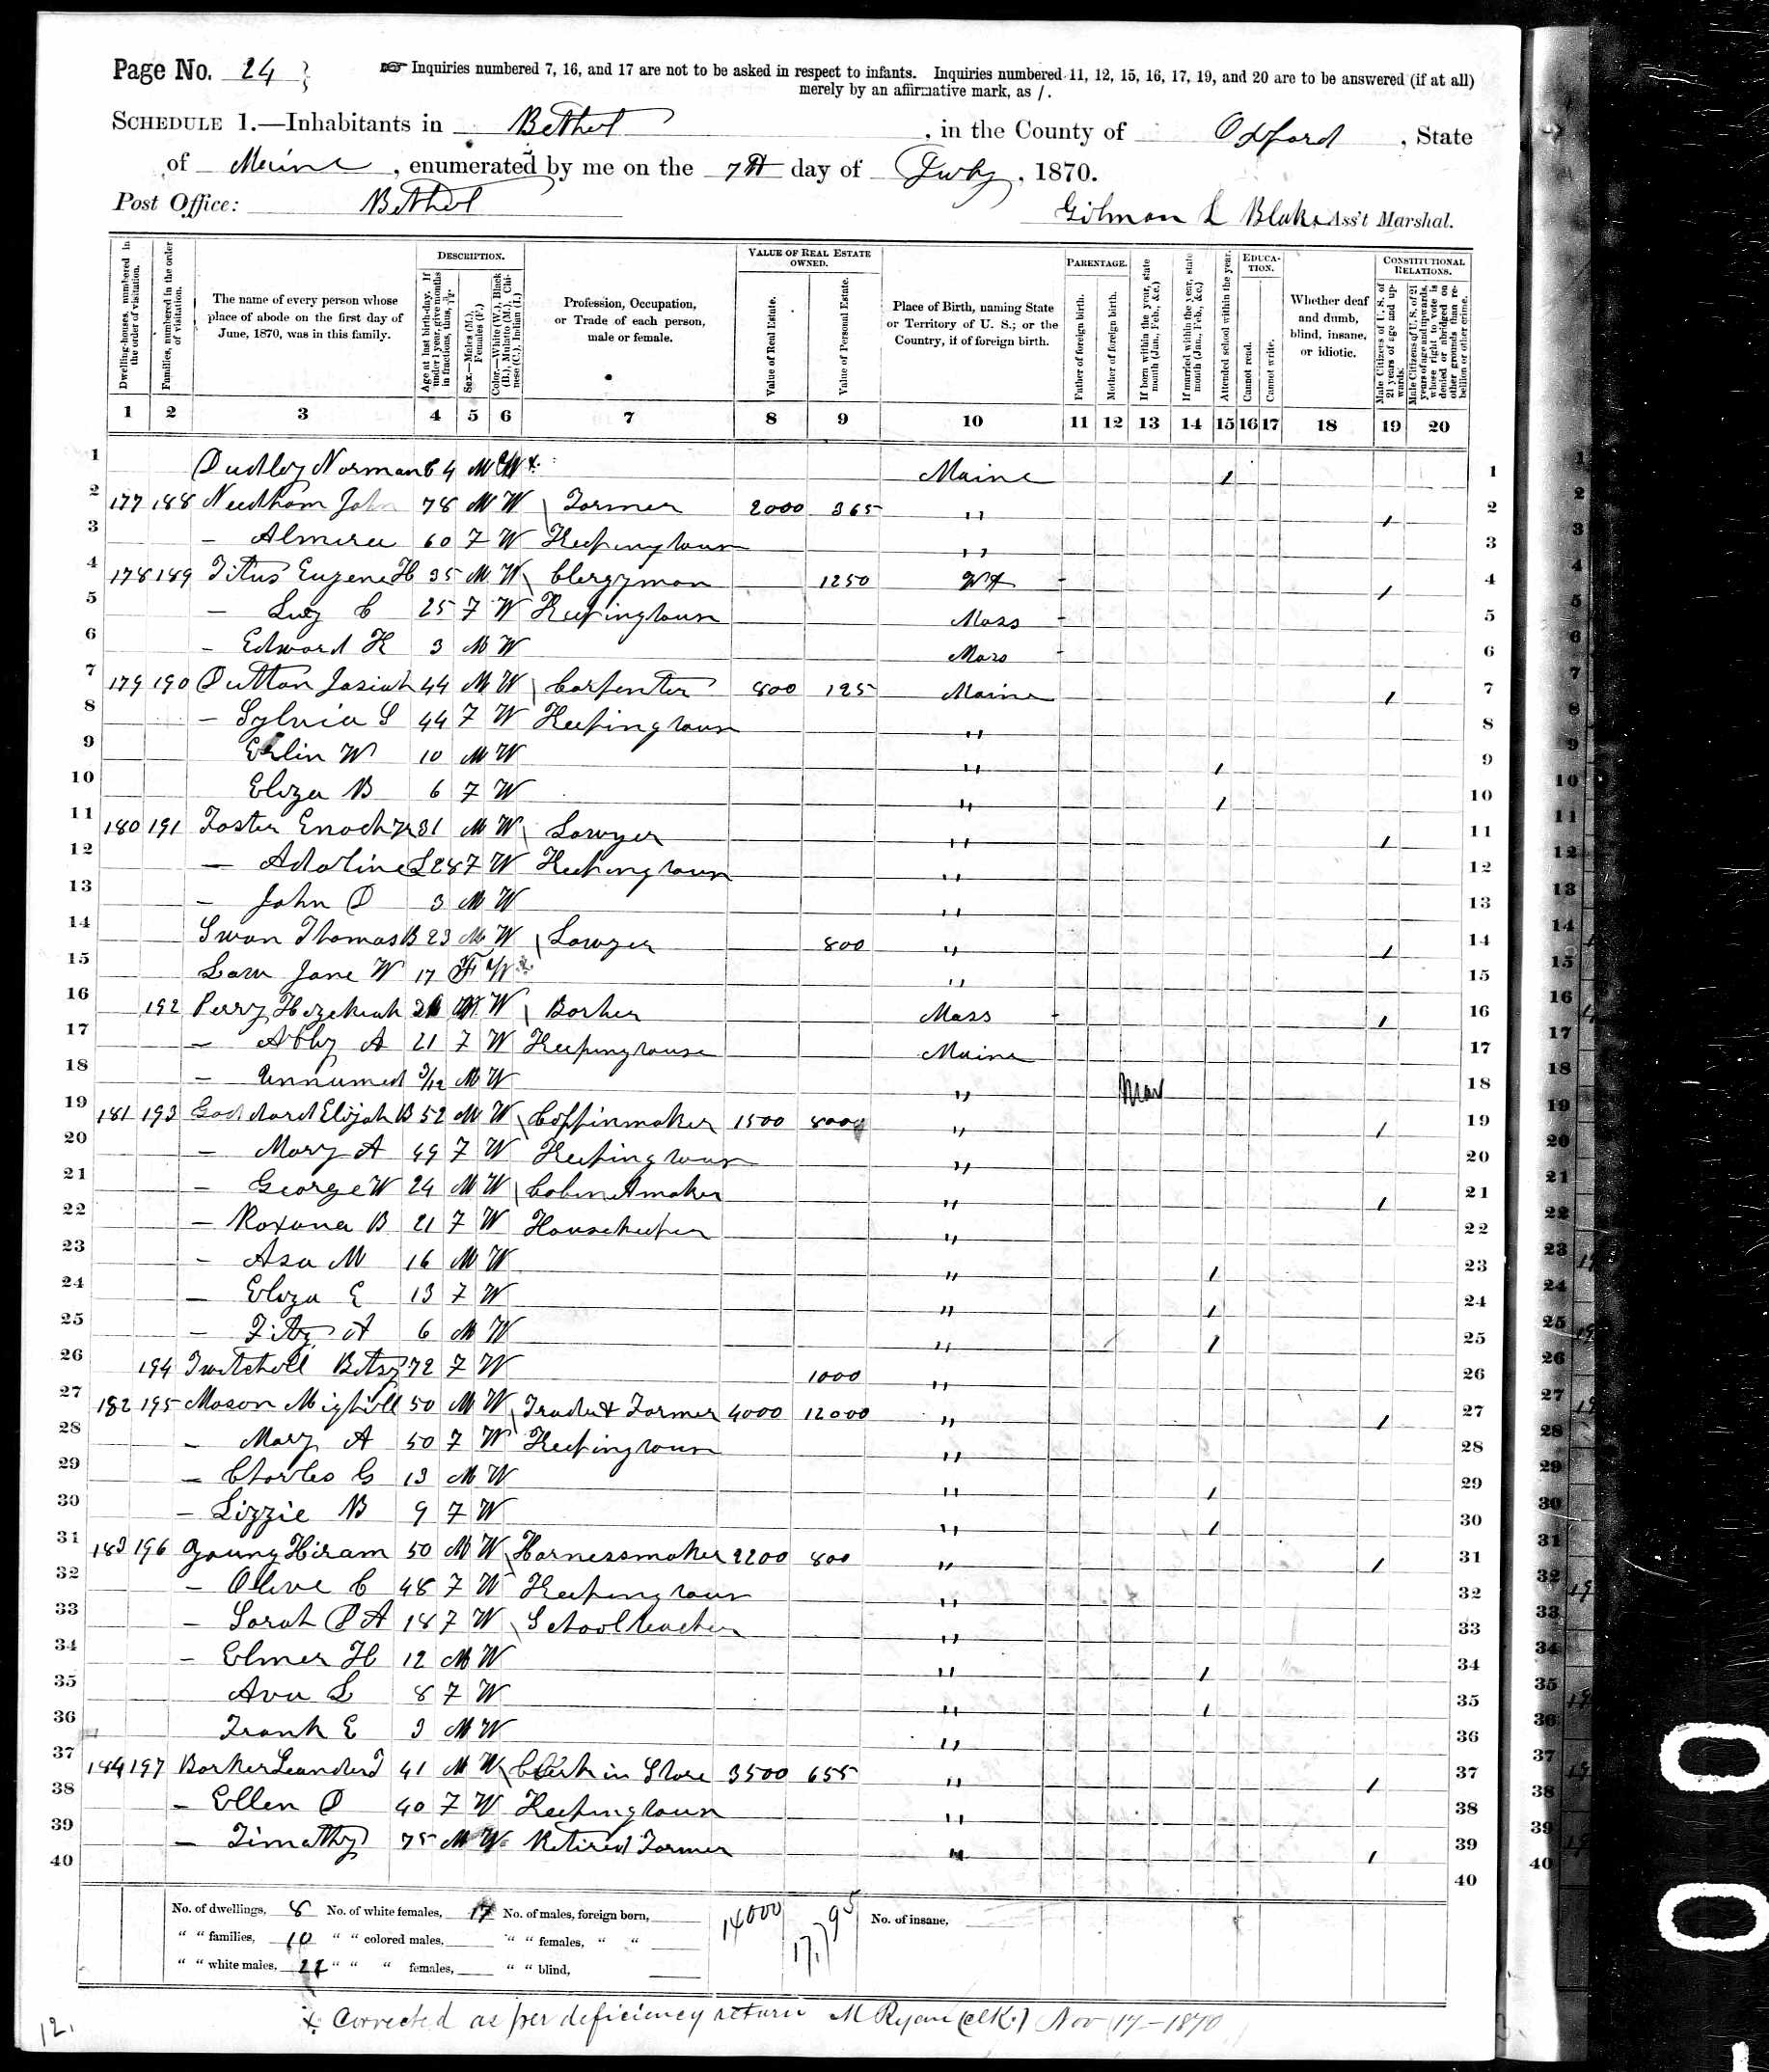 Page No. 24
☞ Inquiries numbered 7, 16, and 17 are not to be asked in respect to infants. Inquiries numbered 11, 12, 15, 16, 17, 19, and 20 are to be answered (if at all)
merely by an affirmative mark, as /.
SCHEDULE 1.—Inhabitants in Bethel, in the County of Oxford, State
of Maine, enumerated by me on the 7th day of July, 1870.
Post Office: Bethel
Gilman L Blake, Ass't Marshal.
Dwelling-houses, numbered in the order of visitation.
Families, numbered in the order of visitation.
The name of every person whose place of abode on the first day of June, 1870, was in this family.
DESCRIPTION.
Age at last birth-day. If under 1 year, give months in fractions, thus, 3/12.
Sex.—Males (M.), Females (F.)
Color.—White (W.), Black (B.), Mulatto (M.), Chinese (C.), Indian (I.)
Profession, Occupation, or Trade of each person, male or female.
VALUE OF REAL ESTATE OWNED.
Value of Real Estate.
Value of Personal Estate.
Place of Birth, naming State or Territory of U. S.; or the Country, if of foreign birth.
PARENTAGE.
Father of foreign birth.
Mother of foreign birth.
If born within the year, state month (Jan., Feb., &c.)
If married within the year, state month (Jan., Feb., &c.)
Attended school within the year.
EDUCATION.
Cannot read.
Cannot write.
Whether deaf and dumb, blind, insane, or idiotic.
CONSTITUTIONAL RELATIONS.
Male Citizens of U. S. of 21 years of age and upwards.
Male Citizens of U. S. of 21 years of age and upwards, whose right to vote is denied or abridged on other grounds than rebellion or other crime.
1 2 3 4 5 6 7 8 9 10 11 12 13 14 15 16 17 18 19 20
1 Dudley Norman 64 M W x Maine / 1
2 177 188 Needham John 78 M W \ Farmer 2000 365 " / 2
3 – Almira 60 F W Keeping house " 3
4 178 189 Titus Eugene H 35 M W \ Clergyman 1250 / 4
5 – Lucy C 25 F W Keeping house Mass 5
6 – Edward H 3 M W Mass 6
7 179 190 Dutton Josiah 44 M W \ Carpenter 800 125 Maine / 7
8 – Sylvia S 44 F W Keeping house " 8
9 W 10 M W " / 9
10 Eliza B 6 F W " / 10
11 180 191 Foster Enoch Jr 31 M W \ Lawyer " / 11
12 – Adaline L 28 F W Keeping house " 12
13 – John D 3 M W " 13
14 Swan Thomas B 23 M W \ Lawyer 800 " / 14
15 Jane W 17 F W x " 15
16 192 Perry Hezekiah M W \ Mass / 16
17 – Abby A 21 F W Keeping house Maine 17
18 – Unnamed 3/12 M W " Mar 18
19 181 193 Goddard Elijah B 52 M W \ Coffinmaker 1500 " / 19
20 – Mary A 49 F W Keeping house " 20
21 – George W 24 M W \ Cabinetmaker " / 21
22 – Roxana B 21 F W Housekeeper " 22
23 – Asa M 16 M W " / 23
24 – Eliza E 13 F W " / 24
25 – Fitz A 6 M W " / 25
26 194 Twitchell Betsy 72 F W 1000 " 26
27 182 195 Mason Mighill 50 M W \ Trader & Farmer 4000 12000 " / 27
28 – Mary A 50 F W Keeping house " 28
29 – Charles G 13 M W " / 29
30 – Lizzie B 9 F W " / 30
31 183 196 Young Hiram 50 M W \ Harnessmaker 2200 800 " / 31
32 – Olive C 48 F W Keeping house " 32
33 – Sarah D A 18 F W \ School teacher " 33
34 – Elmer H 12 M W " / 34
35 Ava L 8 F W " / 35
36 Frank E 3 M W " 36
37 184 197 Barker Leander T 41 M W \ Clerk in Store 3500 655 " / 37
38 – Ellen D 40 F W Keeping house " 38
39 – Timothy 75 M W Retired Farmer " / 39
40 40
No. of dwellings, 8 No. of white females, 17 No. of males, foreign born, 14000 17,795 No. of insane,
" " families, 10 " " colored males, " " females, " "
" " white males, 22 " " " females, " " blind,
x Corrected as per deficiency return M Ryan (clk.) Nov 17–1870
12.